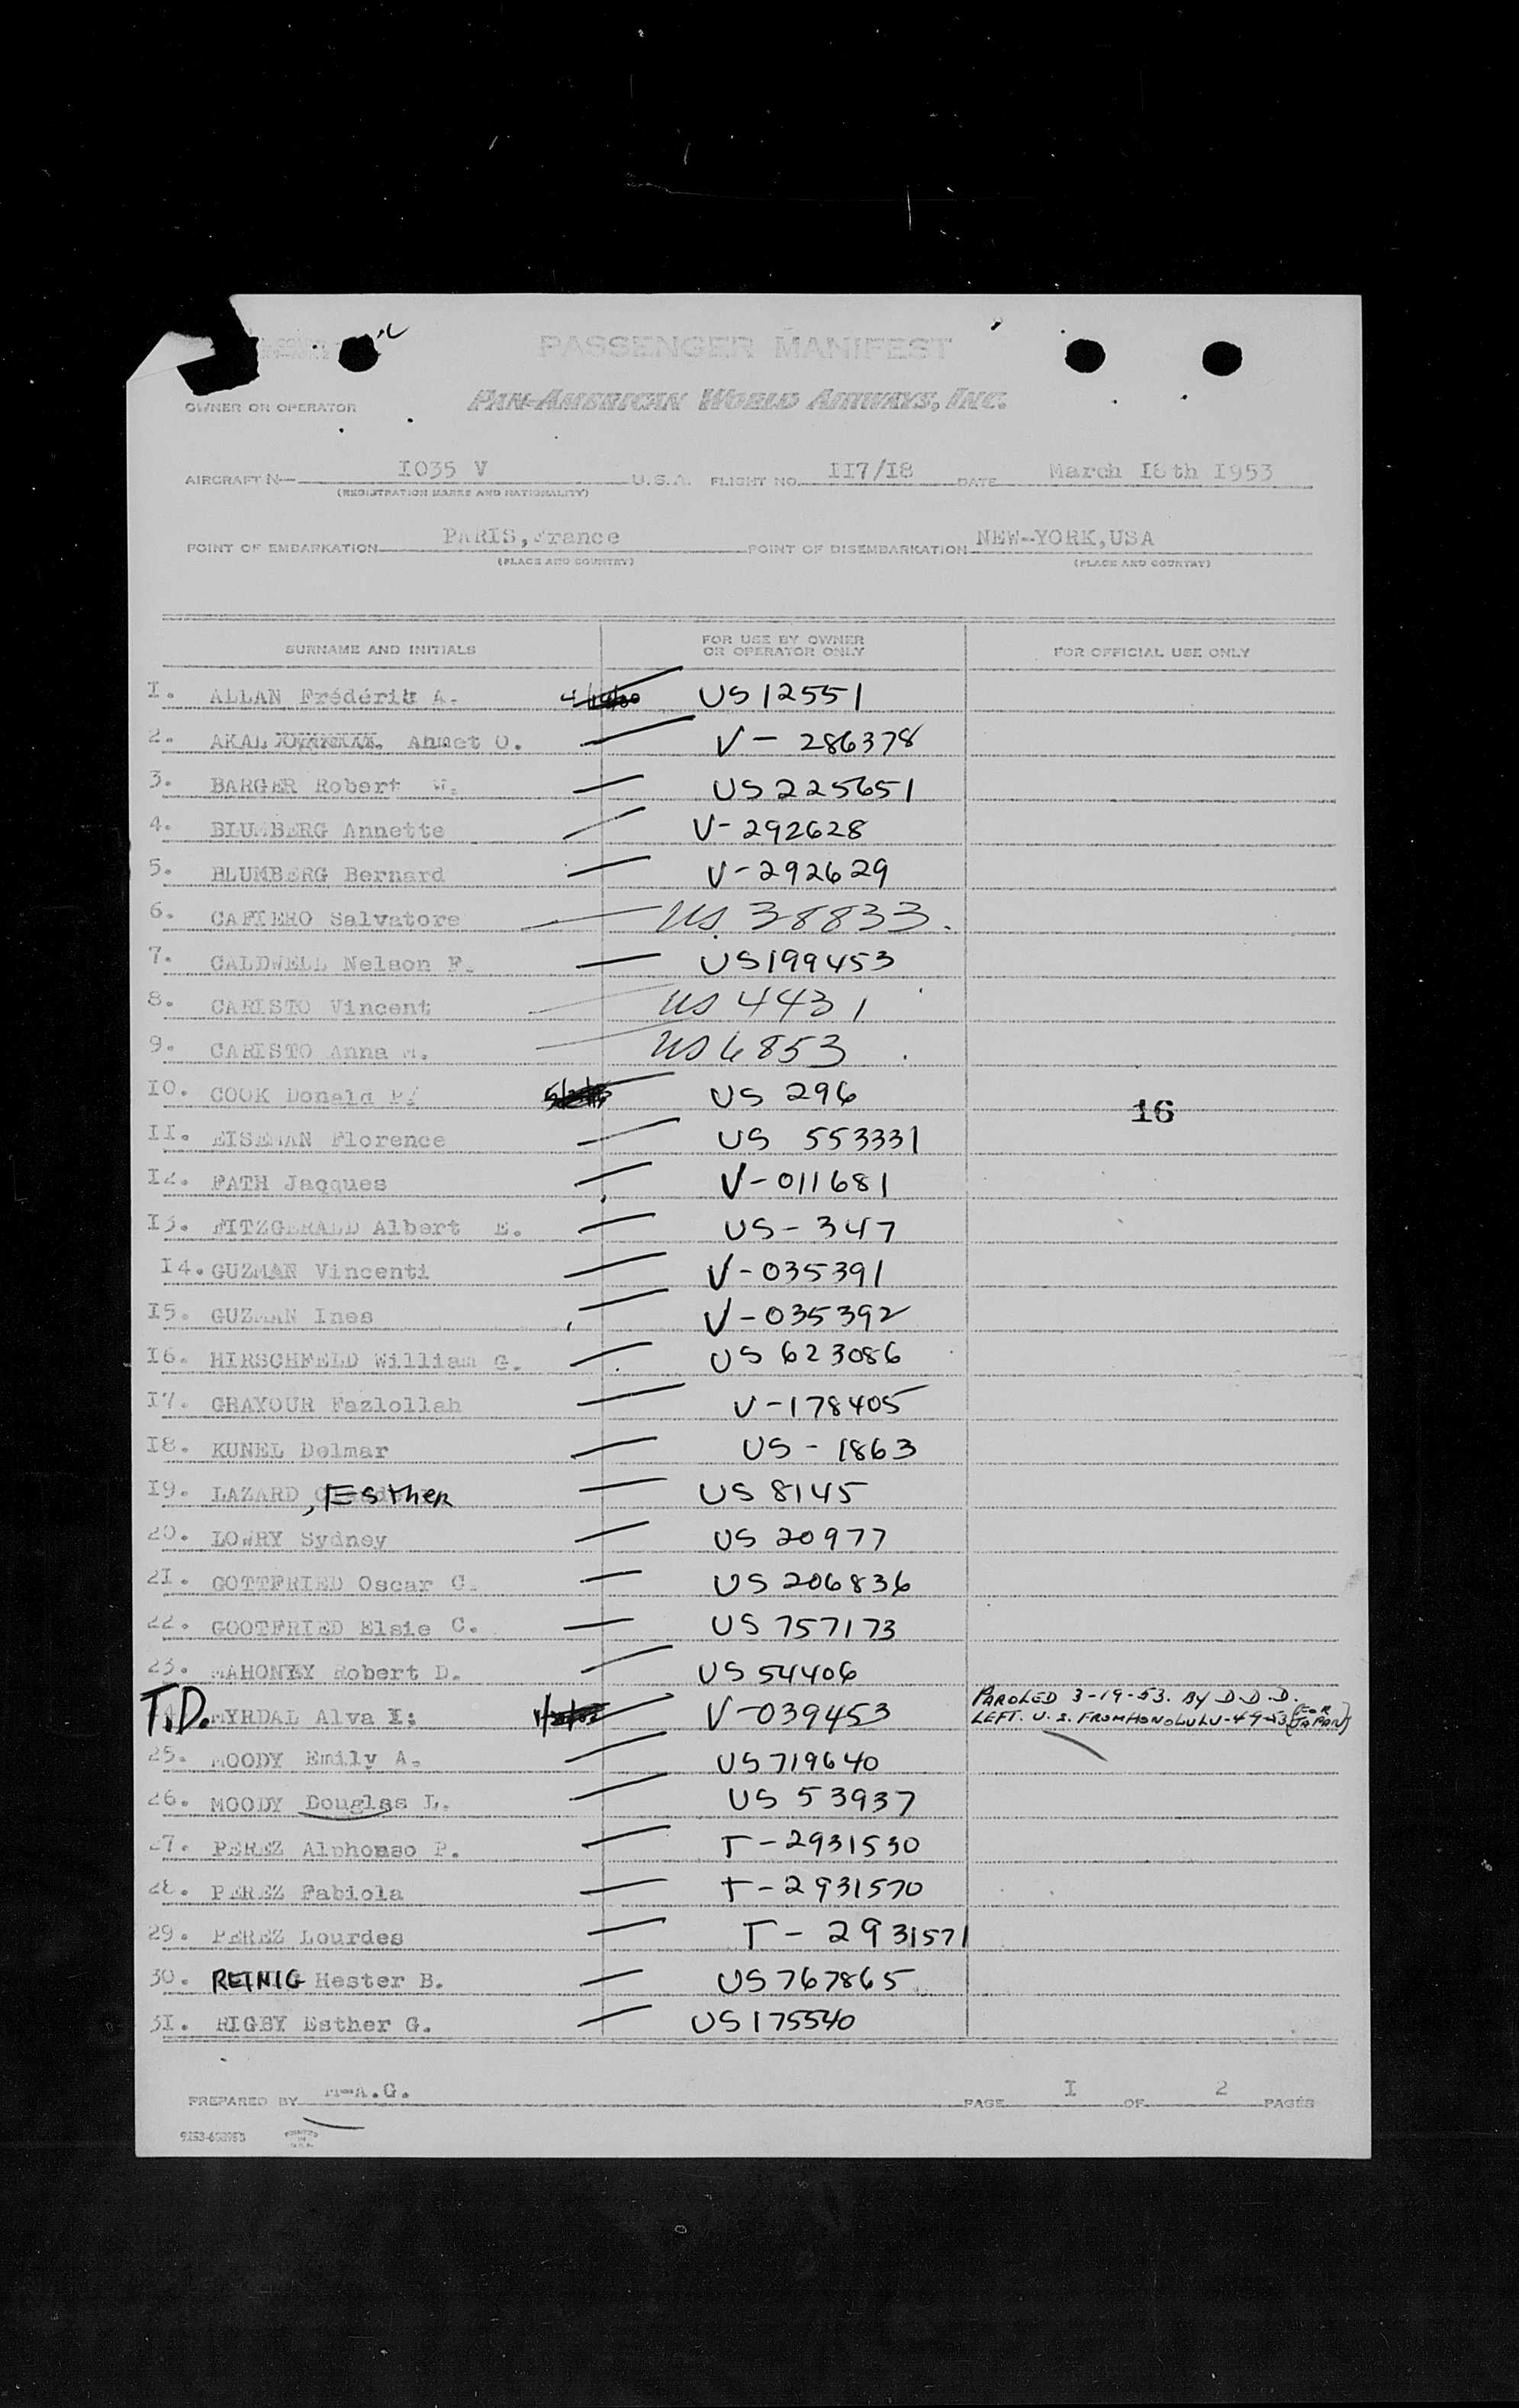 PASSENGER MANIFEST
OWNER OR OPERATOR PAN-AMERICAN WORLD AIRWAYS, INC.
AIRCRAFT N 1035 V U.S.A. FLIGHT NO. II7/I8 DATE March 18th I953
(REGISTRATION MARKS AND NATIONALITY)
POINT OF EMBARKATION PARIS,France POINT OF DISEMBARKATION NEW-YORK,USA
(PLACE AND COUNTRY) (PLACE AND COUNTRY)
SURNAME AND INITIALS FOR USE BY OWNER OR OPERATOR ONLY FOR OFFICIAL USE ONLY
I. ALLAN Frédéric A. US 12551
2. AKAL Ahmet O. V- 286378
3. BARGER Robert W. US 225651
4. BLUMBERG Annette V-292628
5. BLUMBERG Bernard V-292629
6. CAFIERO Salvatore US 38833.
7. CALDWELL Nelson F. US199453
8. CARISTO Vincent US 4431
9. CARISTO Anna M. US 6853
IO. COOK Donald P/ US 296
16
II. EISEMAN Florence US 553331
I2. FATH Jacques V-011681
I3. FITZGERALD Albert E. US-347
I4. GUZMAN Vincenti V-035391
I5. GUZMAN Ines V-035392
I6. HIRSCHFELD William G. US 623086
I7. GHAYOUR Fazlollah V-178405
I8. KUNEL Delmar US - 1863
I9. LAZARD , Esther US 8145
20. LOWRY Sydney US 20977
2I. GOTTFRIED Oscar C. US 206836
22. GOOTFRIED Elsie C. US 757173
23. MAHONEY Robert D. US 54406
T.D. MYRDAL Alva I: V-039453 PAROLED 3-19-53. BY D.D.D.
LEFT. U.S. FROM HONOLULU-4-9-53 (FOR JAPAN)
25. MOODY Emily A. US 719640
26. MOODY Douglas L. US 53937
27. PEREZ Alphonso P. T-2931530
28. PEREZ Fabiola T-2931570
29. PEREZ Lourdes T- 2931571
30. REINIG Hester B. US 767865
3I. RIGBY Esther G. US 175540
PREPARED BY M-A.G. PAGE I OF 2 PAGES
PRINTED IN U.S.A.